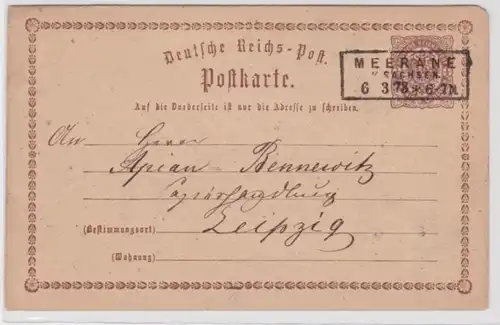 Deutsche Reichs-Post.
Postkarte.
MEERANE
I/SACHSEN.
6 3 73 * 6-7N.
Auf die Vorderseite ist nur die Adresse zu schreiben.
An Herrn
Apian-Bennewitz
Papierhandlung
(Bestimmungsort) Leipzig
(Wohnung)